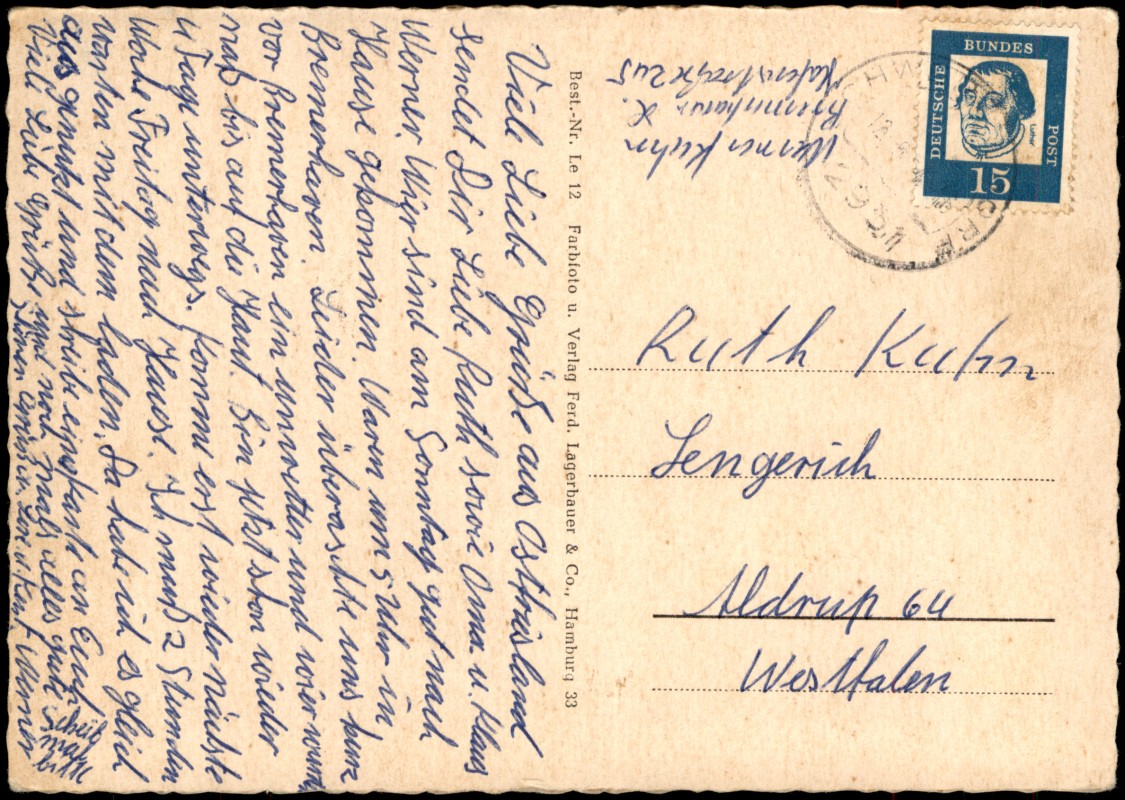 Viele Liebe Grüße aus Ostfriesland
sendet Dir Liebe Ruth sowie Oma u. Klaus
Werner. Wir sind am Sonntag gut nach
Hause gekommen. Waren um 5 Uhr in
Bremerhaven. Leider überraschte uns kurz
vor Bremerhaven ein unwetter und wir wurden
naß bis auf die Haut. Bin jetzt schon wieder
unterwegs. Komme erst wieder nächste
Woche Freitag nach Hause. Ich muß 2 Stunden
warten mit dem laden. Da habe ich es gleich
aus genutzt und schreibe eine Karte an Euch.
Viele Liebe Grüße und noch mals alles gute
Werner
Best.-Nr. Le 12 Farbfoto u. Verlag Ferd. Lagerbauer & Co., Hamburg 33
Werner Kuhn
Hafenstraße 245
DEUTSCHE
BUNDES
POST
Luther
15
Ruth Kuhn
Lengerich
Aldrup 64
Westfalen